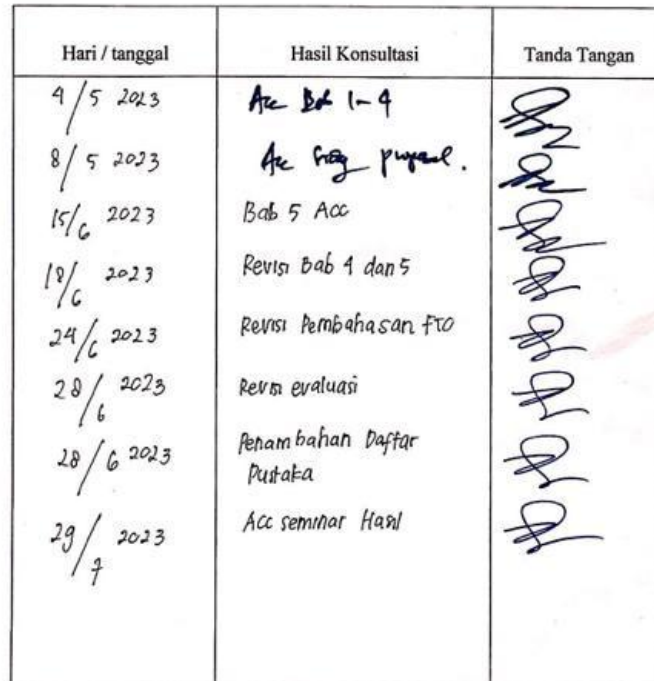 Hari / tanggal Hasil Konsultasi Tanda Tangan
4/5 2023 Acc Bab 1-4
8/5 2023 Acc proposal.
15/6 2023 Bab 5 Acc
18/6 2023 Revisi Bab 4 dan 5
24/6 2023 Revisi Pembahasan FTO
28/6 2023 Revisi evaluasi
28/6 2023 Penambahan Daftar
Pustaka
29/7 2023 Acc seminar Hasil